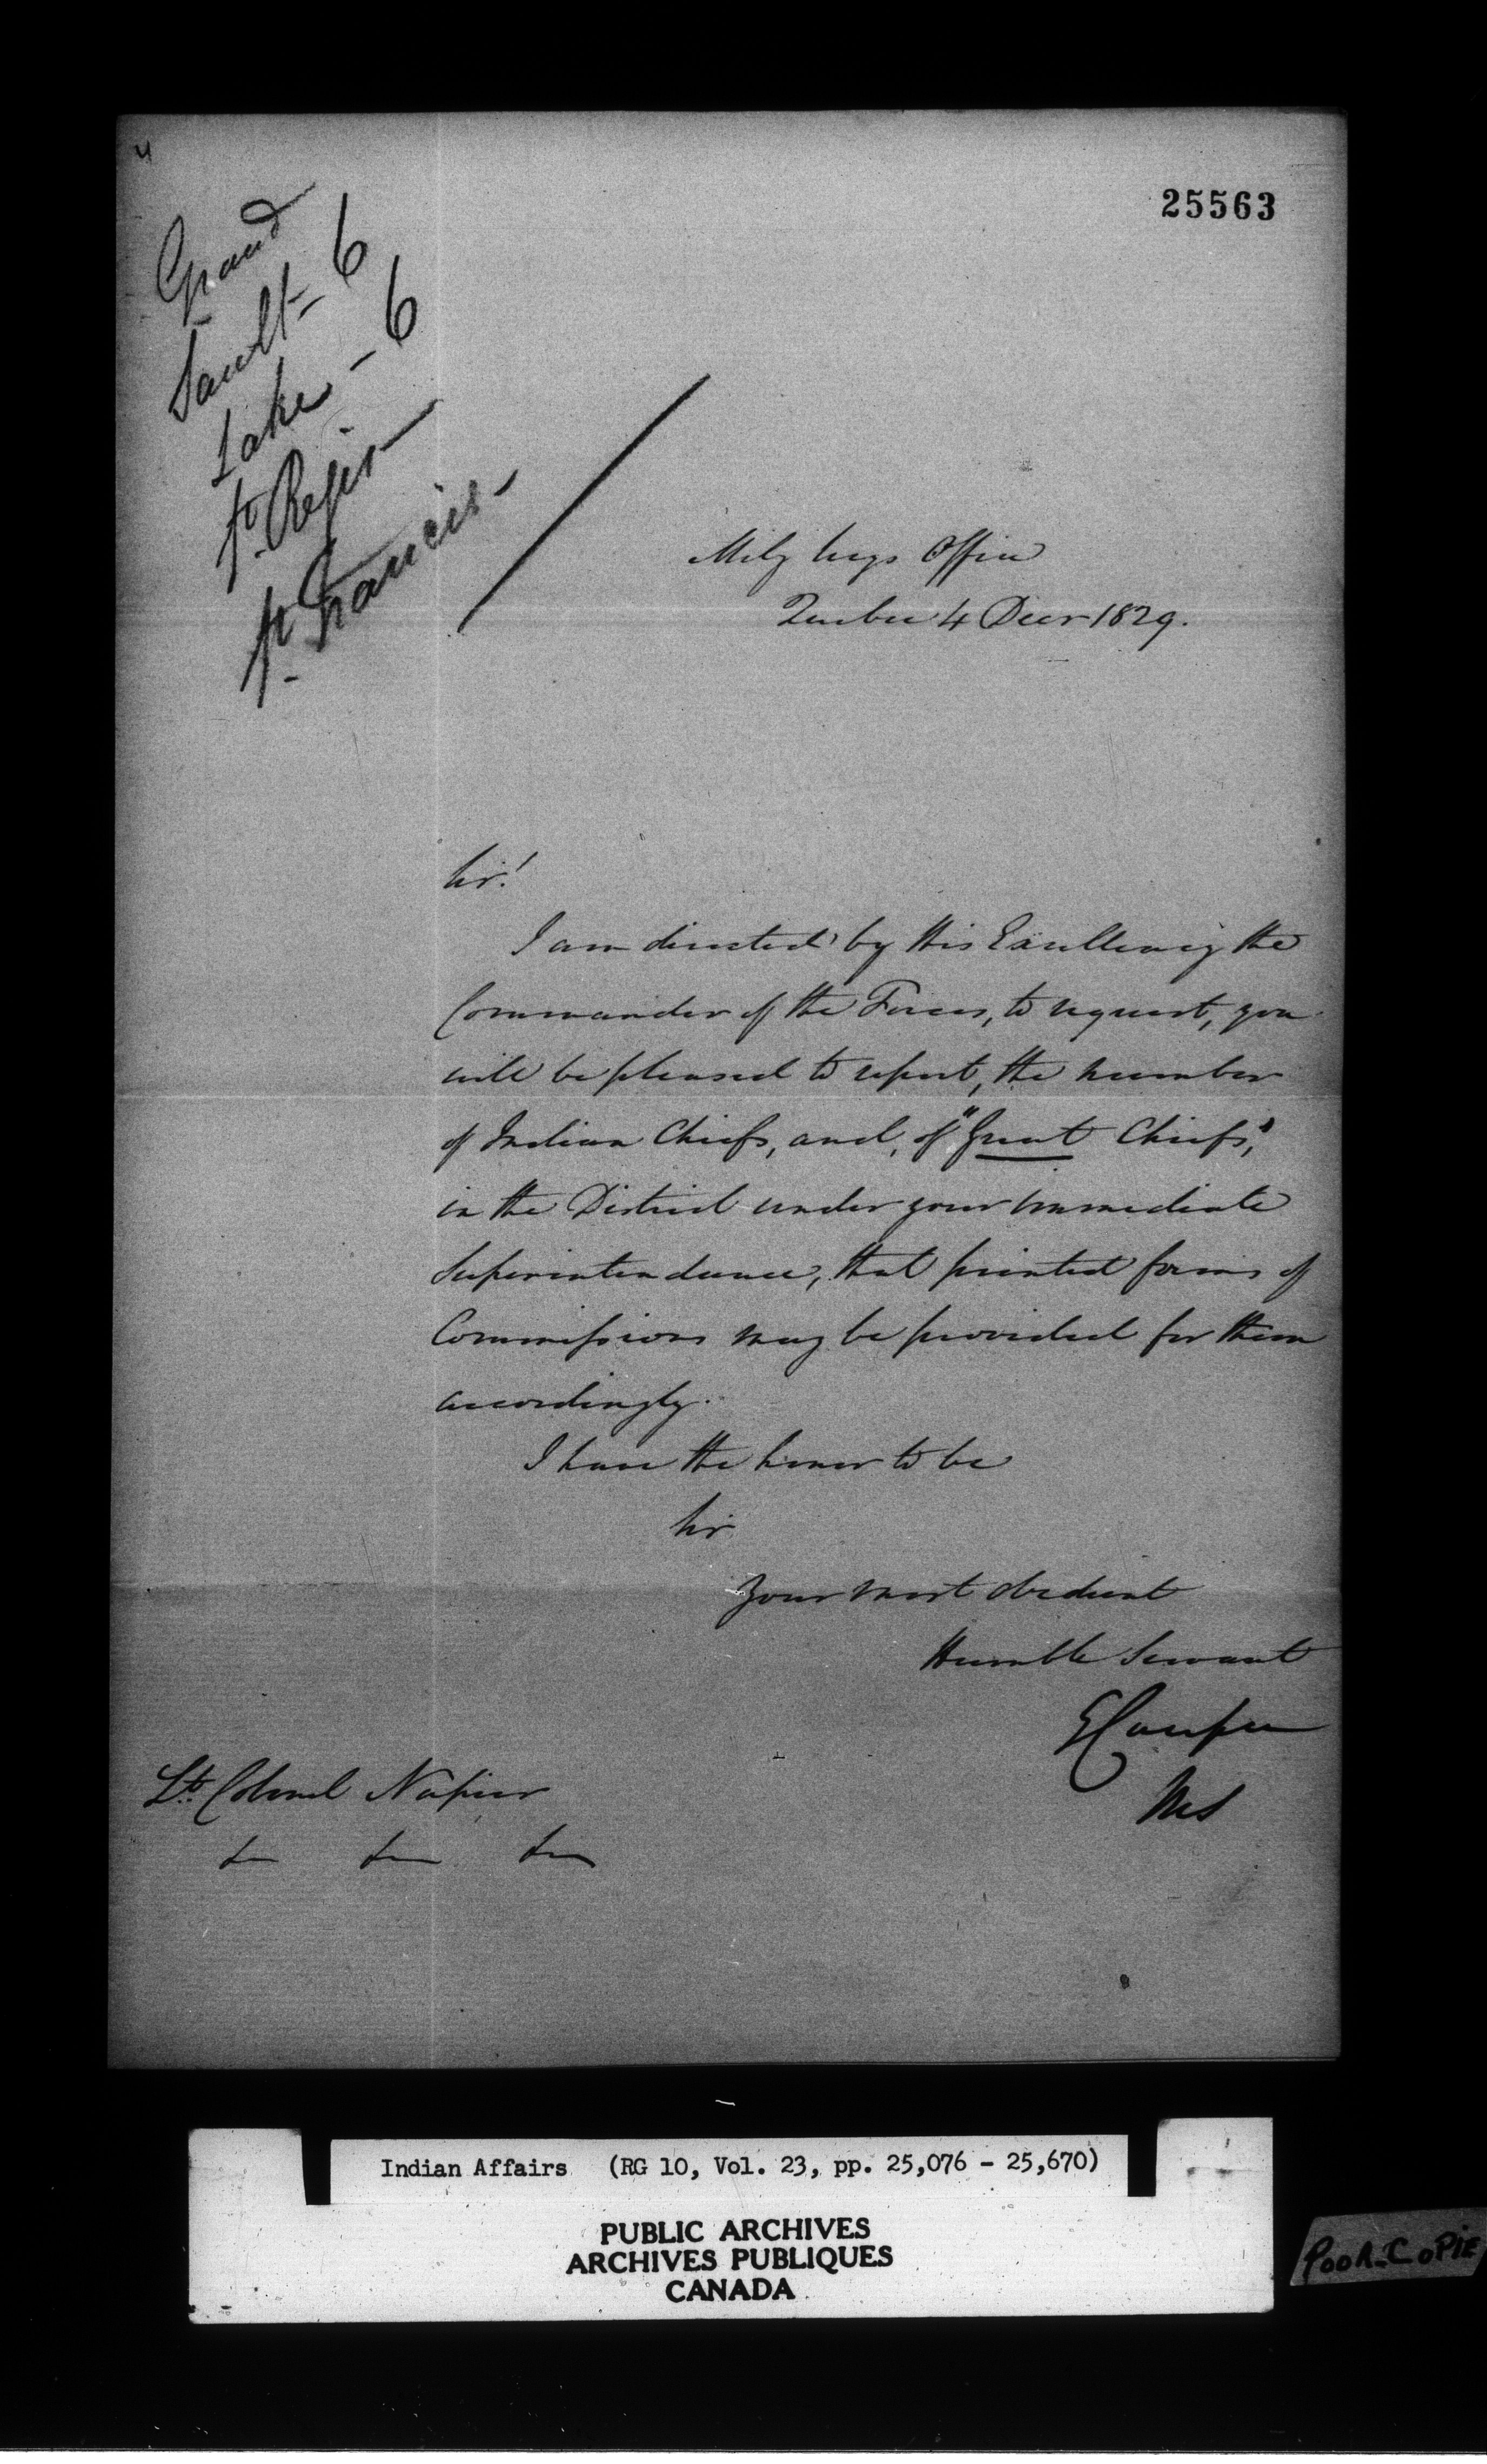 25563
Grand
Sault - 6
Lake - 6
St Regis -
St Francis -
Mily Secys Office
Quebec 4 Decr 1829.
Sir!
I am directed by His Excellency the
Commander of the Forces, to request, you
will be pleased to report, the number
of Indian Chiefs, and, of "Great Chiefs,"
in the District under your immediate
Superintendance, that printed forms of
Commissions may be provided for them
accordingly.
I have the honor to be
Sir
Your most obedient
Humble Servant
Couper
MS
Lt. Colonel Napier
&c &c &c
Indian Affairs (RG 10, Vol. 23, pp. 25,076 - 25,670)
PUBLIC ARCHIVES
ARCHIVES PUBLIQUES
CANADA
POOR COPIE